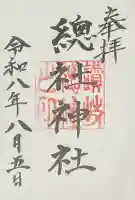 奉拝
總社神社
令和八年八月五日